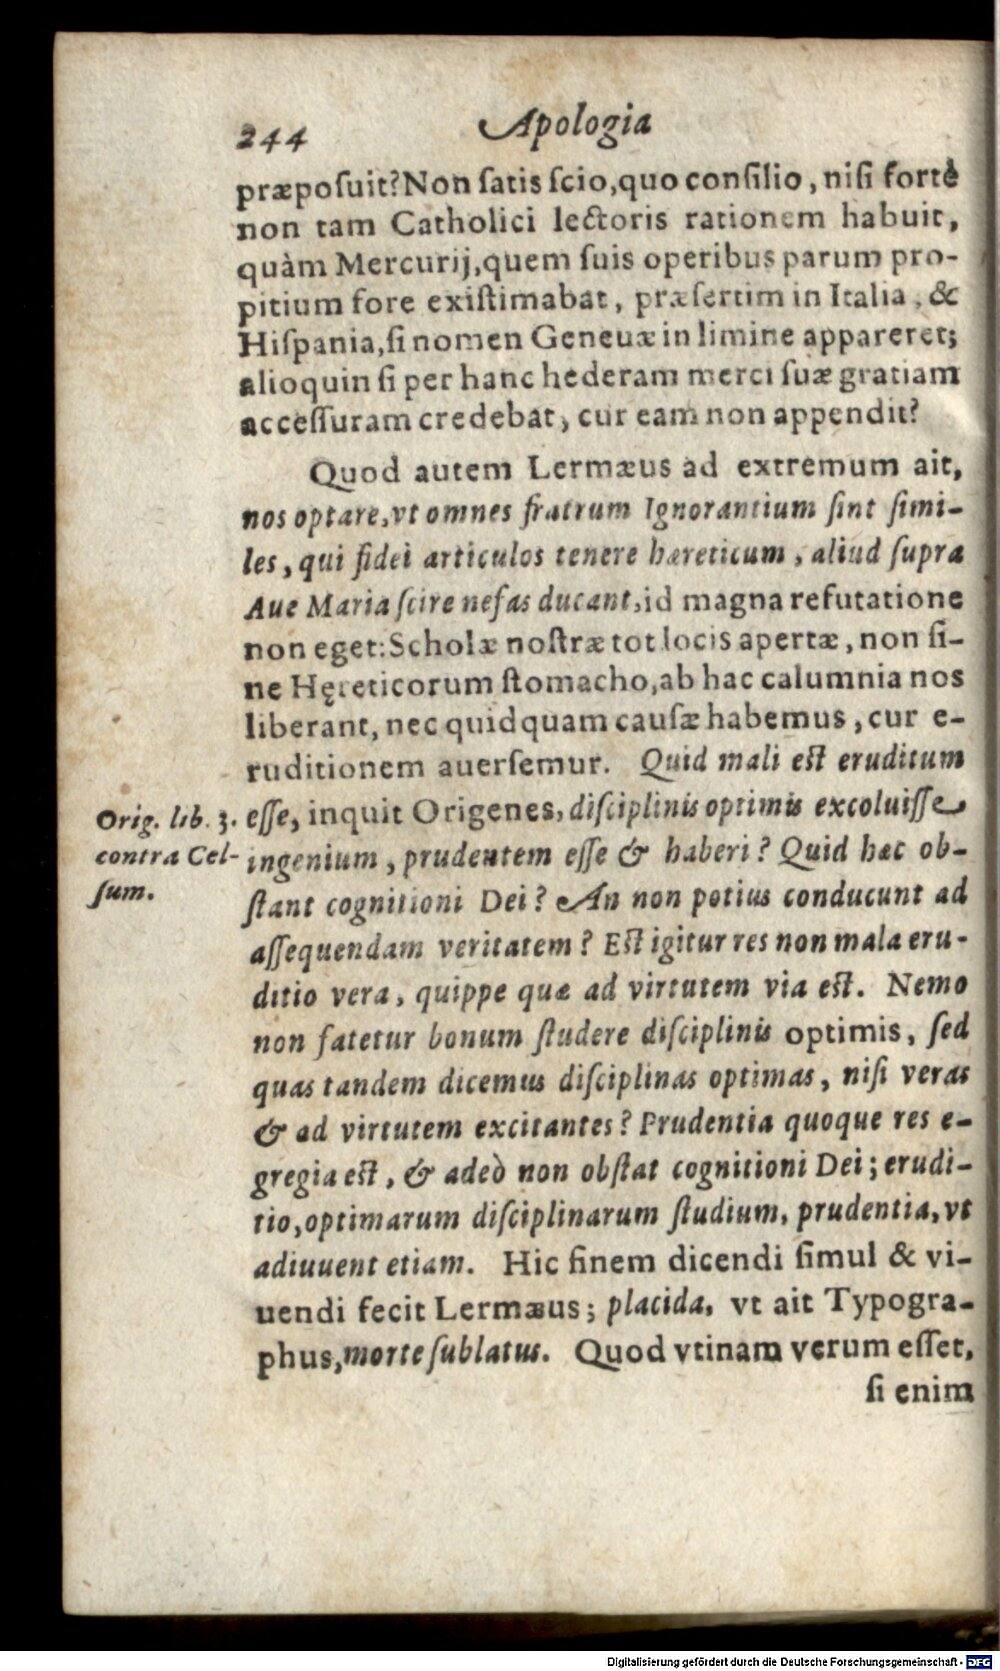 244 Apologia
præposuit? Non satis scio, quo consilio, nisi fortè
non tam Catholici lectoris rationem habuit,
quàm Mercurij, quem suis operibus parum pro-
pitium fore existimabat, præsertim in Italia, &
Hispania, si nomen Geneuæ in limine appareret;
alioquin si per hanc hederam merci suæ gratiam
accessuram credebat, cur eam non appendit?
Quod autem Lermæus ad extremum ait,
nos optare, vt omnes fratrum Ignorantium sint simi-
les, qui fidei articulos tenere hæreticum, aliud supra
Aue Maria scire nefas ducant, id magna refutatione
non eget: Scholæ nostræ tot locis apertæ, non si-
ne Hęreticorum stomacho, ab hac calumnia nos
liberant, nec quidquam causæ habemus, cur e-
ruditionem auersemur. Quid mali est eruditum
Orig. lib. 3.
contra Cel-
sum.
esse, inquit Origenes, disciplinis optimis excoluisse
ingenium, prudentem esse & haberi? Quid hæc ob-
stant cognitioni Dei? An non potius conducunt ad
assequendam veritatem? Est igitur res non mala eru-
ditio vera, quippe quæ ad virtutem via est. Nemo
non fatetur bonum studere disciplinis optimis, sed
quas tandem dicemus disciplinas optimas, nisi veras
& ad virtutem excitantes? Prudentia quoque res e-
gregia est, & adeò non obstat cognitioni Dei; erudi-
tio, optimarum disciplinarum studium, prudentia, vt
adiuuent etiam. Hic finem dicendi simul & vi-
uendi fecit Lermæus; placida, vt ait Typogra-
phus, morte sublatus. Quod vtinam verum esset,
si enim
Digitalisierung gefördert durch die Deutsche Forschungsgemeinschaft - DFG